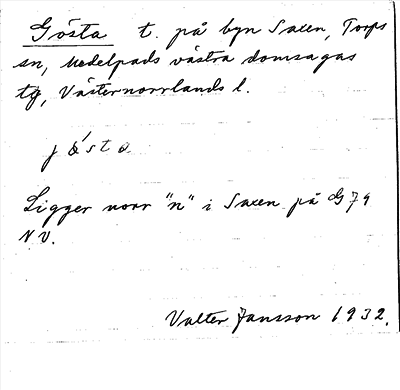 Gösta t. på byn Saxen, Torps
sn, Medelpads västra domsagas
tg, Västernorrlands l.
Ligger norr "n" i Saxen på G 74
N V.
Valter Jansson 1932.